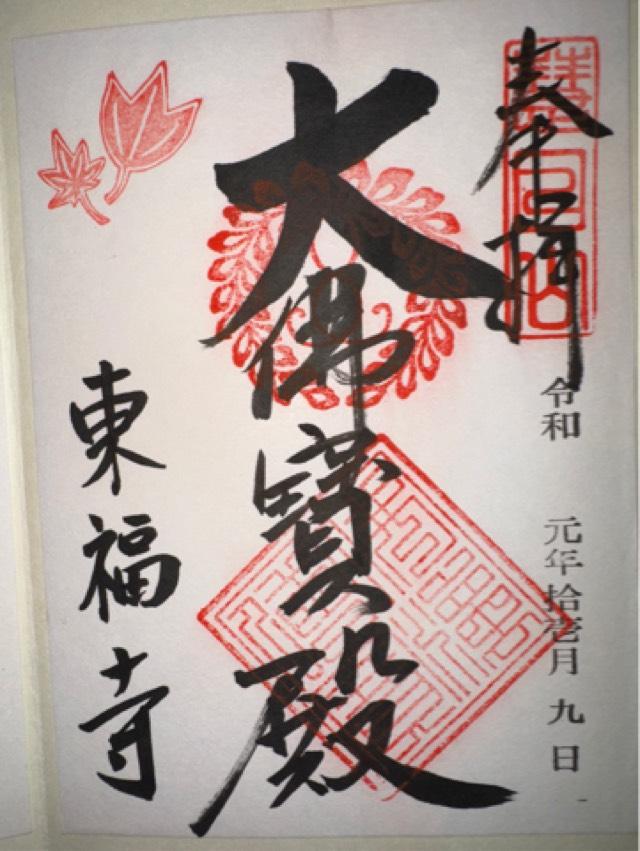 奉拝
令和 元年拾壱月九日
大佛寳殿
東福寺